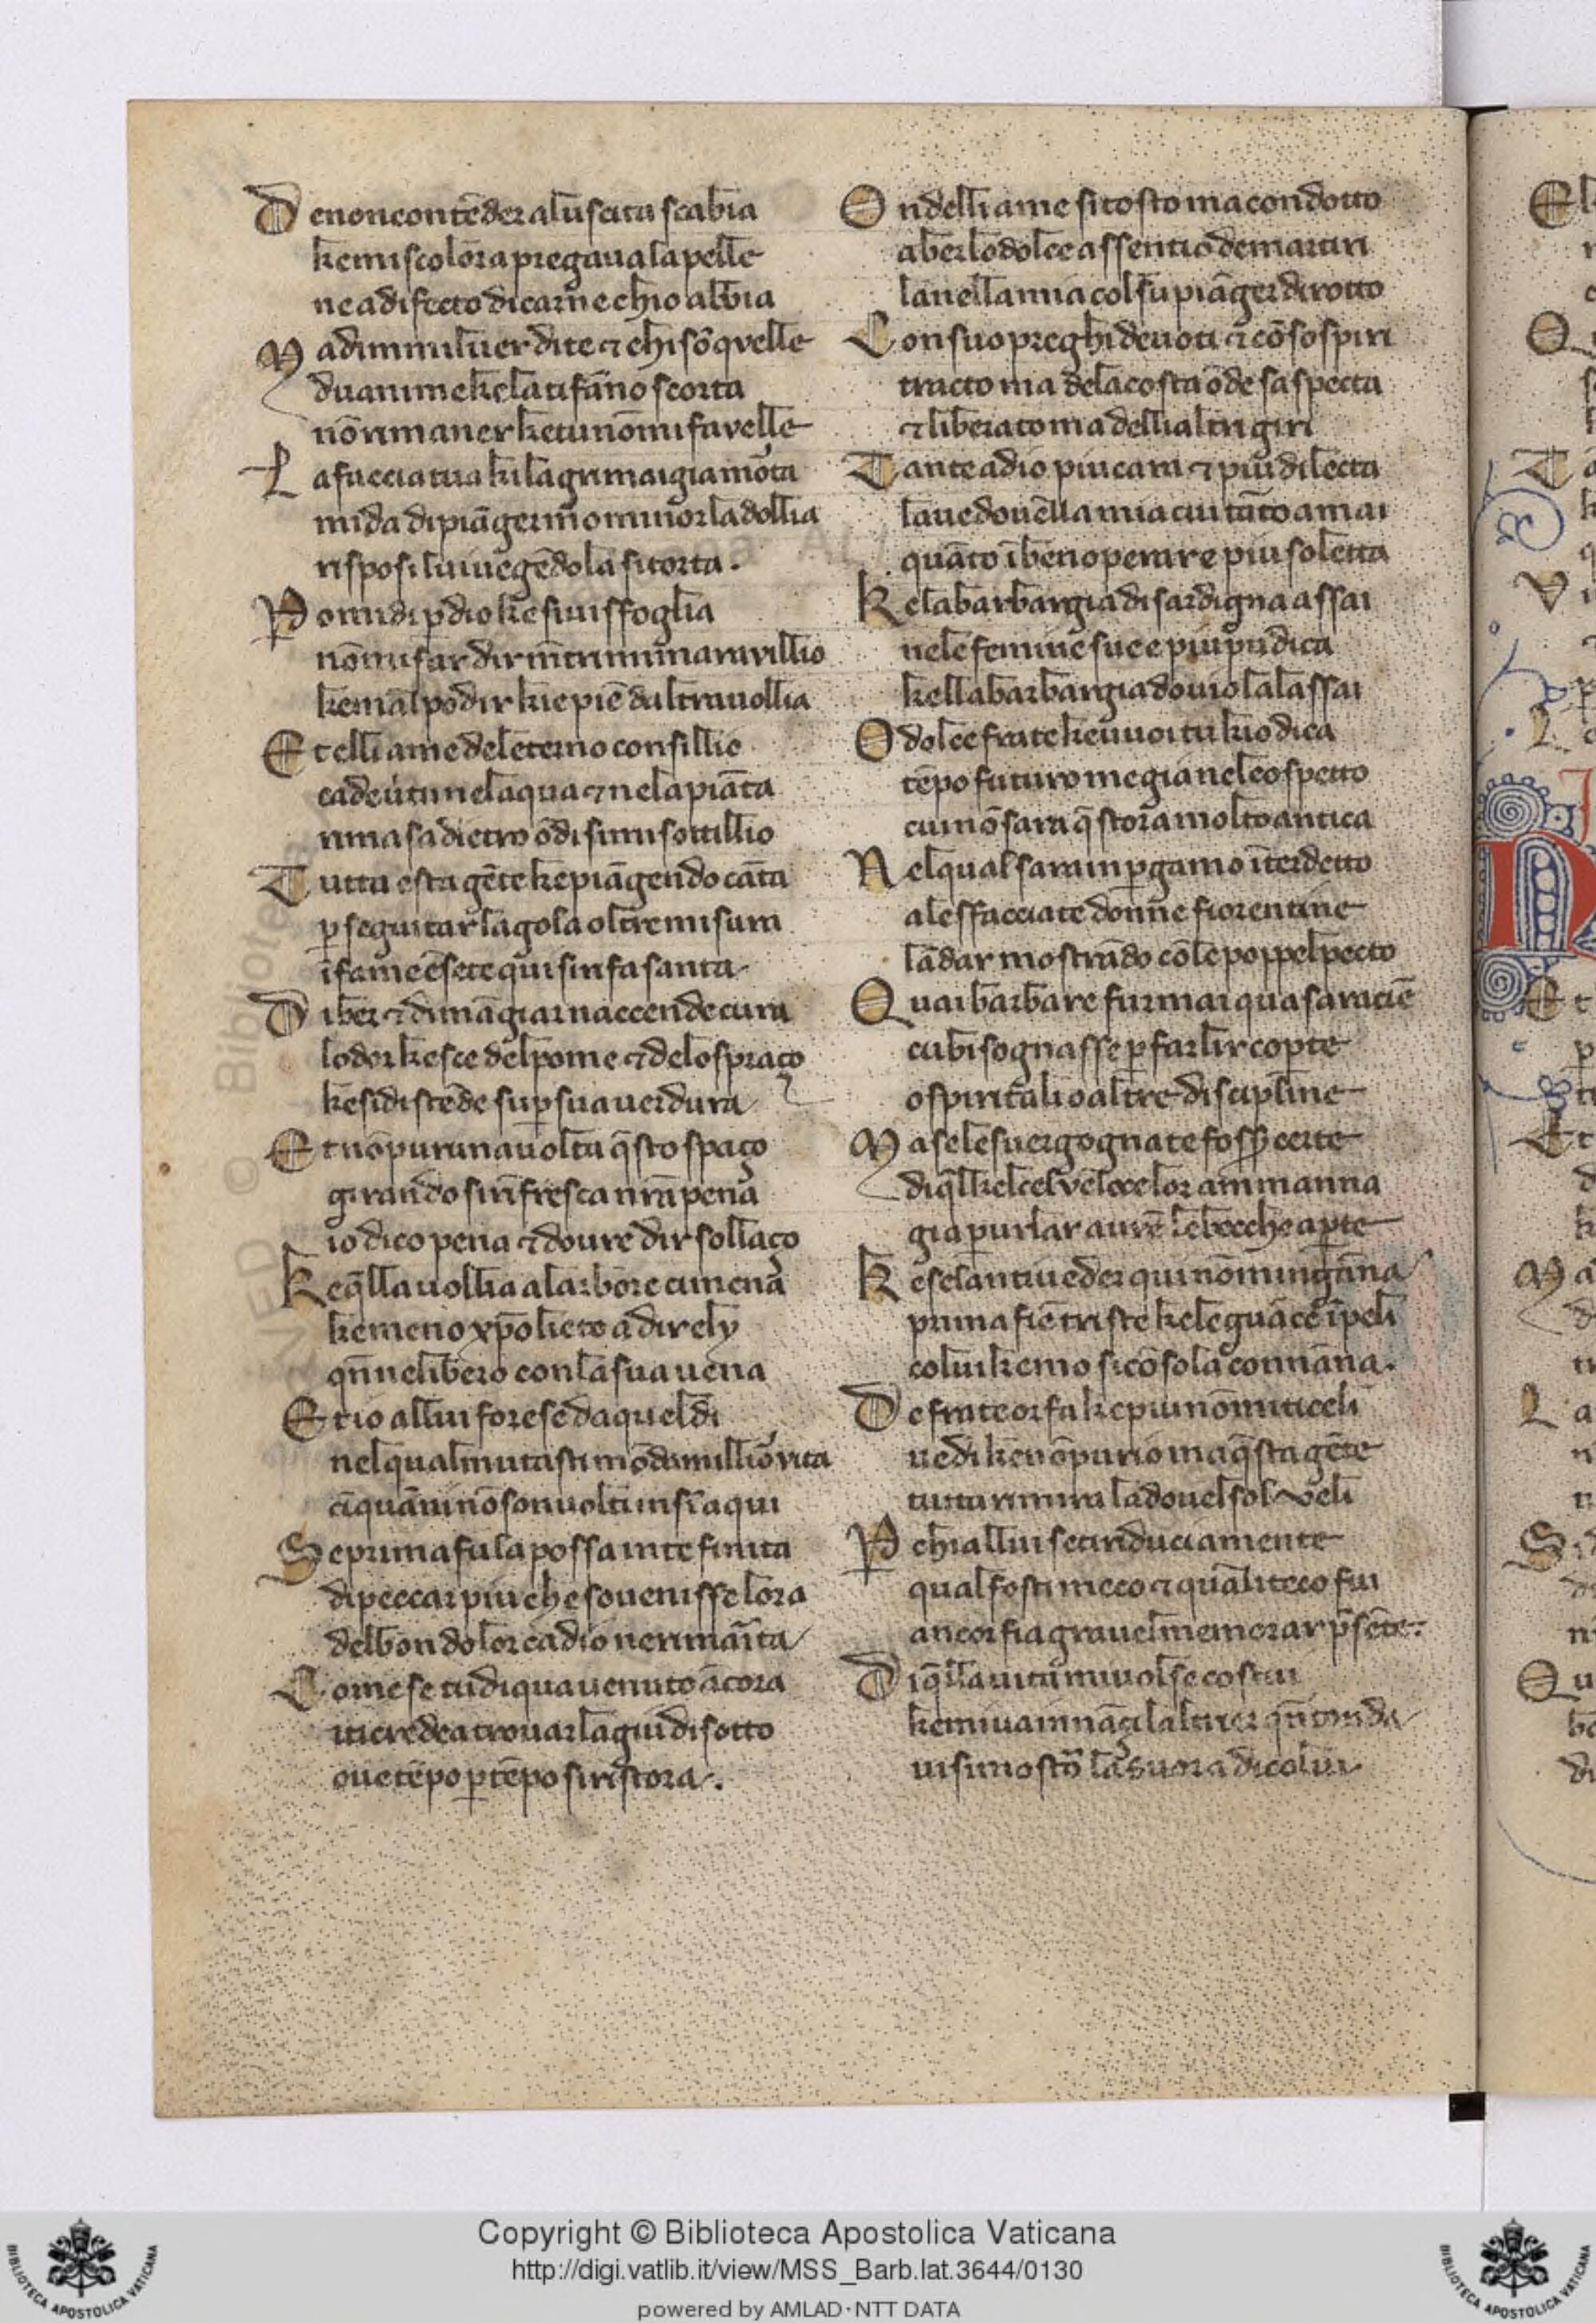 De non contēder a lasciuta scabia
ke mi scolora pregaua la pelle
ne a difecto di carne chio abbia
Ma dimmil uer di te ⁊ chi sō quelle
du anime ke la ti fāno scorta
nō rimaner ke tu nō mi favelle
La faccia tua ki lagrimai gia morta
mi da di piāger mo minor la dollia
risposi lui uegēdola si torta.
Po mi di p̱ dio ke si ui sfoglia
nō mi far dir mētrimmi maravillio
ke mal po dir ki e piē daltra uollia
Et elli a me de leterno consillio
cade u̇tu ne laqua ⁊ ne la piāta
rimasa dietro ōdi si mi sottillio
Tutta esta gēte ke piāgendo cāta
p̱ seguitar la gola oltre misura
ī fame ē sete qui si rifa santa
Di ber ⁊ di māgiar naccende cura
lodor kesce del pome ⁊ de lo spraço
ke si distēde su p̱ sua uerdura
Et nō pur una uolta q̄sto spaço
girando si rīfresca nr̄a pena
io dico pena ⁊ doure dir sollaço
Ke q̄lla uollia a larbore ci mena
ke meno xp̄o lieto a dire ely
qn̄ ne libero con la sua uena
Et io a llui forese da quel di
nel qual mutasti mōdo a millior vita
cīquāni nō son uolti insin̄ a qui
Se prima fu la possa in te finita
di peccar piu che souenisse lora
del bon dolor ca dio ne rimarita
Come se tu di qua uenuto ācora
i ti credea trouar la giu di sotto
oue tēpo p̱ tēpo si ristora.
Ondelli a me si tosto ma condotto
a ber lo dolce assentio de martiri
la nella mia col su piāger dirotto
Con suo preghi deuoti ⁊ cō sospiri
tracto ma de la costa ōde saspecta
⁊ liberato ma delli altri giri
Tante a dio piu cara ⁊ piu dilecta
la uedouella mia cui tāto amai
quāto ī bene operare e piu soletta
Ke la barbargia di sardigna assai
ne le femine sue e piu pudica
ke lla barbargia douio la lassai
O dolce frate ke uuoi tu kio dica
tēpo futuro me gia nel cospetto
cui nō sara q̄stora molto antica
Nel qual sara in p̱gamo īterdetto
a le sfacciate donne fiorentine
lādar mostrādo cō le poppe l pecto
Quai barbare fur mai qua saracīe
cui bisognasse p̱ farlir cop̱te
o spiritali o altre discipline
Ma se le suergognate fosser certe
di q̄l ke l cel veloce lor ammanna
gia p urlar aurē le bocche ap̱te
Ke se lantiueder qui nō mingāna
prima fiē triste ke le guāce īpeli
colui ke mo si cōsola con nāna.
De frate or fa ke piu nō mi ti celi
uedi ke nō pur io ma q̄sta gēte
tutta rimira la doue l sol veli
P̱ chi a llui se ti riduci a mente
qual fosti meco ⁊ qual io teco fui
ancor fia graue l memorar p̄sēte.
Di q̄lla uita mi uolse costui
ke mi ua innāçi laltrier qn̄ tonda
ui si mostrò la suora di colui
Copyright © Biblioteca Apostolica Vaticana
http://digi.vatlib.it/view/MSS_Barb.lat.3644/0130
powered by AMLAD·NTT DATA
BIBLIOTECA APOSTOLICA VATICANA
BIBLIOTECA APOSTOLICA VATICANA